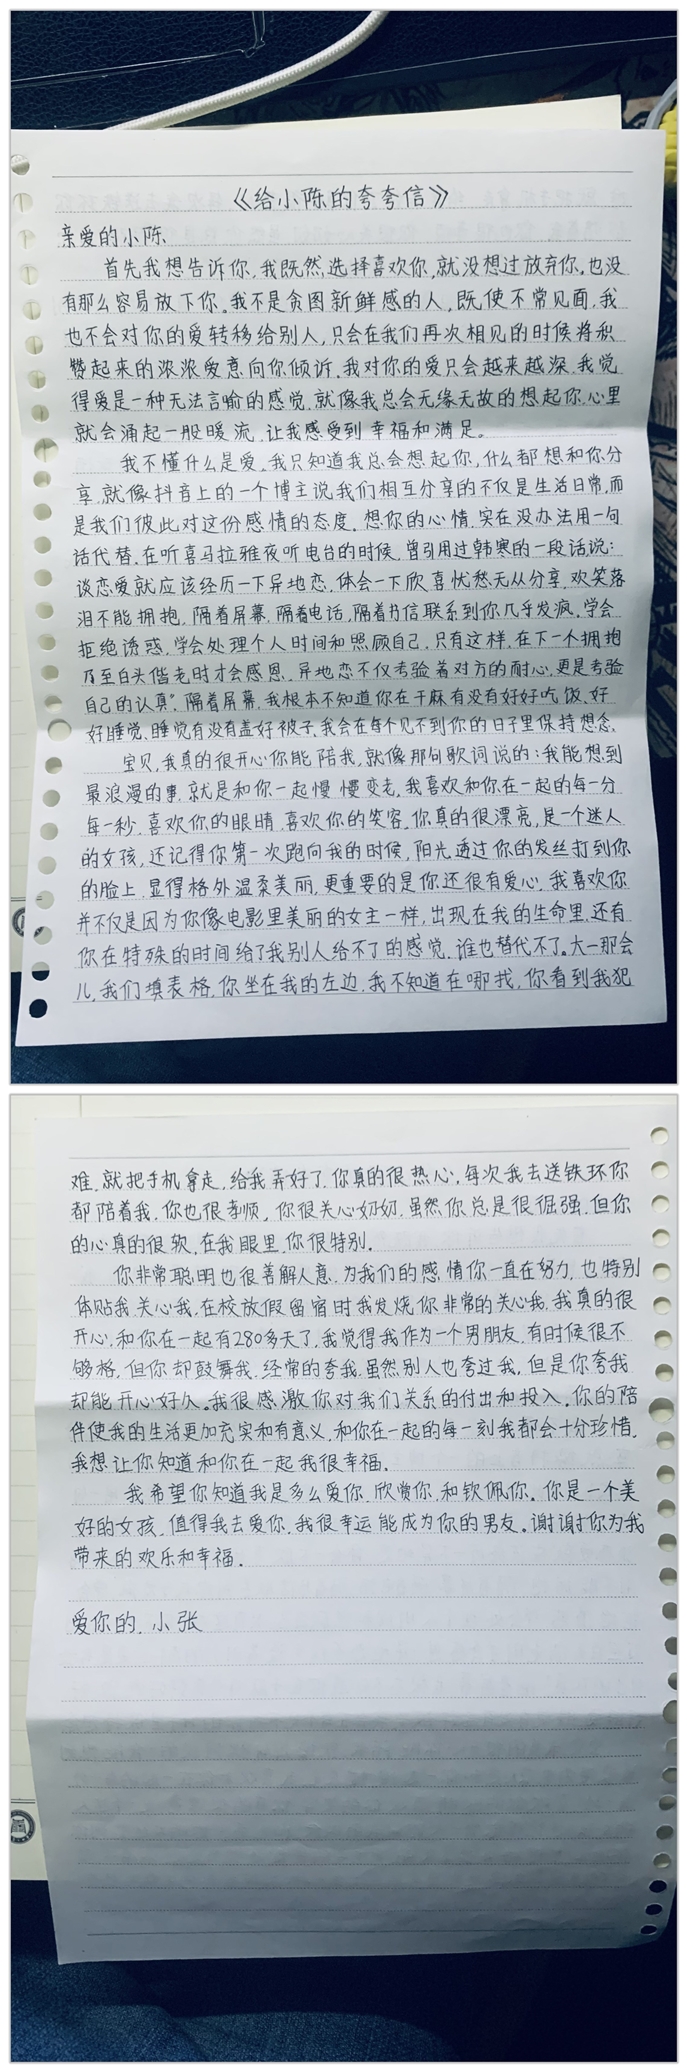 《给小陈的夸夸信》
亲爱的小陈、
首先我想告诉你,我既然选择喜欢你,就没想过放弃你,也没
有那么容易放下你。我不是贪图新鲜感的人,既使不常见面,我
也不会对你的爱转移给别人,只会在我们再次相见的时候将积
赞起来的浓浓爱意向你倾诉,我对你的爱只会越来越深,我觉
得爱是一种无法言喻的感觉,就像我总会无缘无故的想起你,心里
就会涌起一股暖流,让我感受到幸福和满足。
我不懂什么是爱,我只知道我总会想起你,什么都想和你分
享,就像抖音上的一个博主说我们相互分享的不仅是生活日常,而
是我们彼此对这份感情的态度,想你的心情,实在没办法用一句
话代替,在听喜马拉雅夜听电台的时候,曾引用过韩寒的一段话说:
谈恋爱就应该经历一下异地恋,体会一下欣喜忧愁无从分享,欢笑落
泪不能拥抱,隔着屏幕,隔着电话,隔着书信联系到你几乎发疯,学会
拒绝诱惑,学会处理个人时间和照顾自己,只有这样,在下一个拥抱
乃至白头偕老时才会感恩,异地恋不仅考验着对方的耐心,更是考验
自己的认真”。隔着屏幕,我根本不知道你在干麻有没有好好吃饭、好
好睡觉、睡觉有没有盖好被子,我会在每个见不到你的日子里保持想念、
宝贝,我真的很开心你能陪我,就像那句歌词说的:我能想到
最浪漫的事,就是和你一起慢慢变老,我喜欢和你在一起的每一分
每一秒,喜欢你的眼睛,喜欢你的笑容,你真的很漂亮,是一个迷人
的女孩,还记得你第一次跑向我的时候,阳光透过你的发丝打到你
的脸上,显得格外温柔美丽,更重要的是你还很有爱心,我喜欢你
并不仅是因为你像电影里美丽的女主一样,出现在我的生命里,还有
你在特殊的时间给了我别人给不了的感觉,谁也替代不了。大一那会
儿,我们填表格,你坐在我的左边,我不知道在哪找,你看到我犯
难,就把手机拿走,给我弄好了,你真的很热心,每次我去送铁环你
都陪着我,你也很孝顺,你很关心奶奶,虽然你总是很倔强,但你
的心真的很软,在我眼里,你很特别.
你非常聪明也很善解人意,为我们的感情你一直在努力,也特别
体贴我,关心我,在校放假留宿时我发烧你非常的关心我,我真的很
开心,和你在一起有280多天了,我觉得我作为一个男朋友,有时候很不
够格,但你却鼓舞我,经常的夸我,虽然别人也夸过我,但是你夸我
却能开心好久。我很感激你对我们关系的付出和投入,你的陪
伴使我的生活更加充实和有意义,和你在一起的每一刻我都会十分珍惜,
我想让你知道和你在一起我很幸福.
我希望你知道我是多么爱你,欣赏你,和钦佩你。你是一个美
好的女孩,值得我去爱你,我很幸运能成为你的男友。谢谢你为我
带来的欢乐和幸福.
爱你的,小张